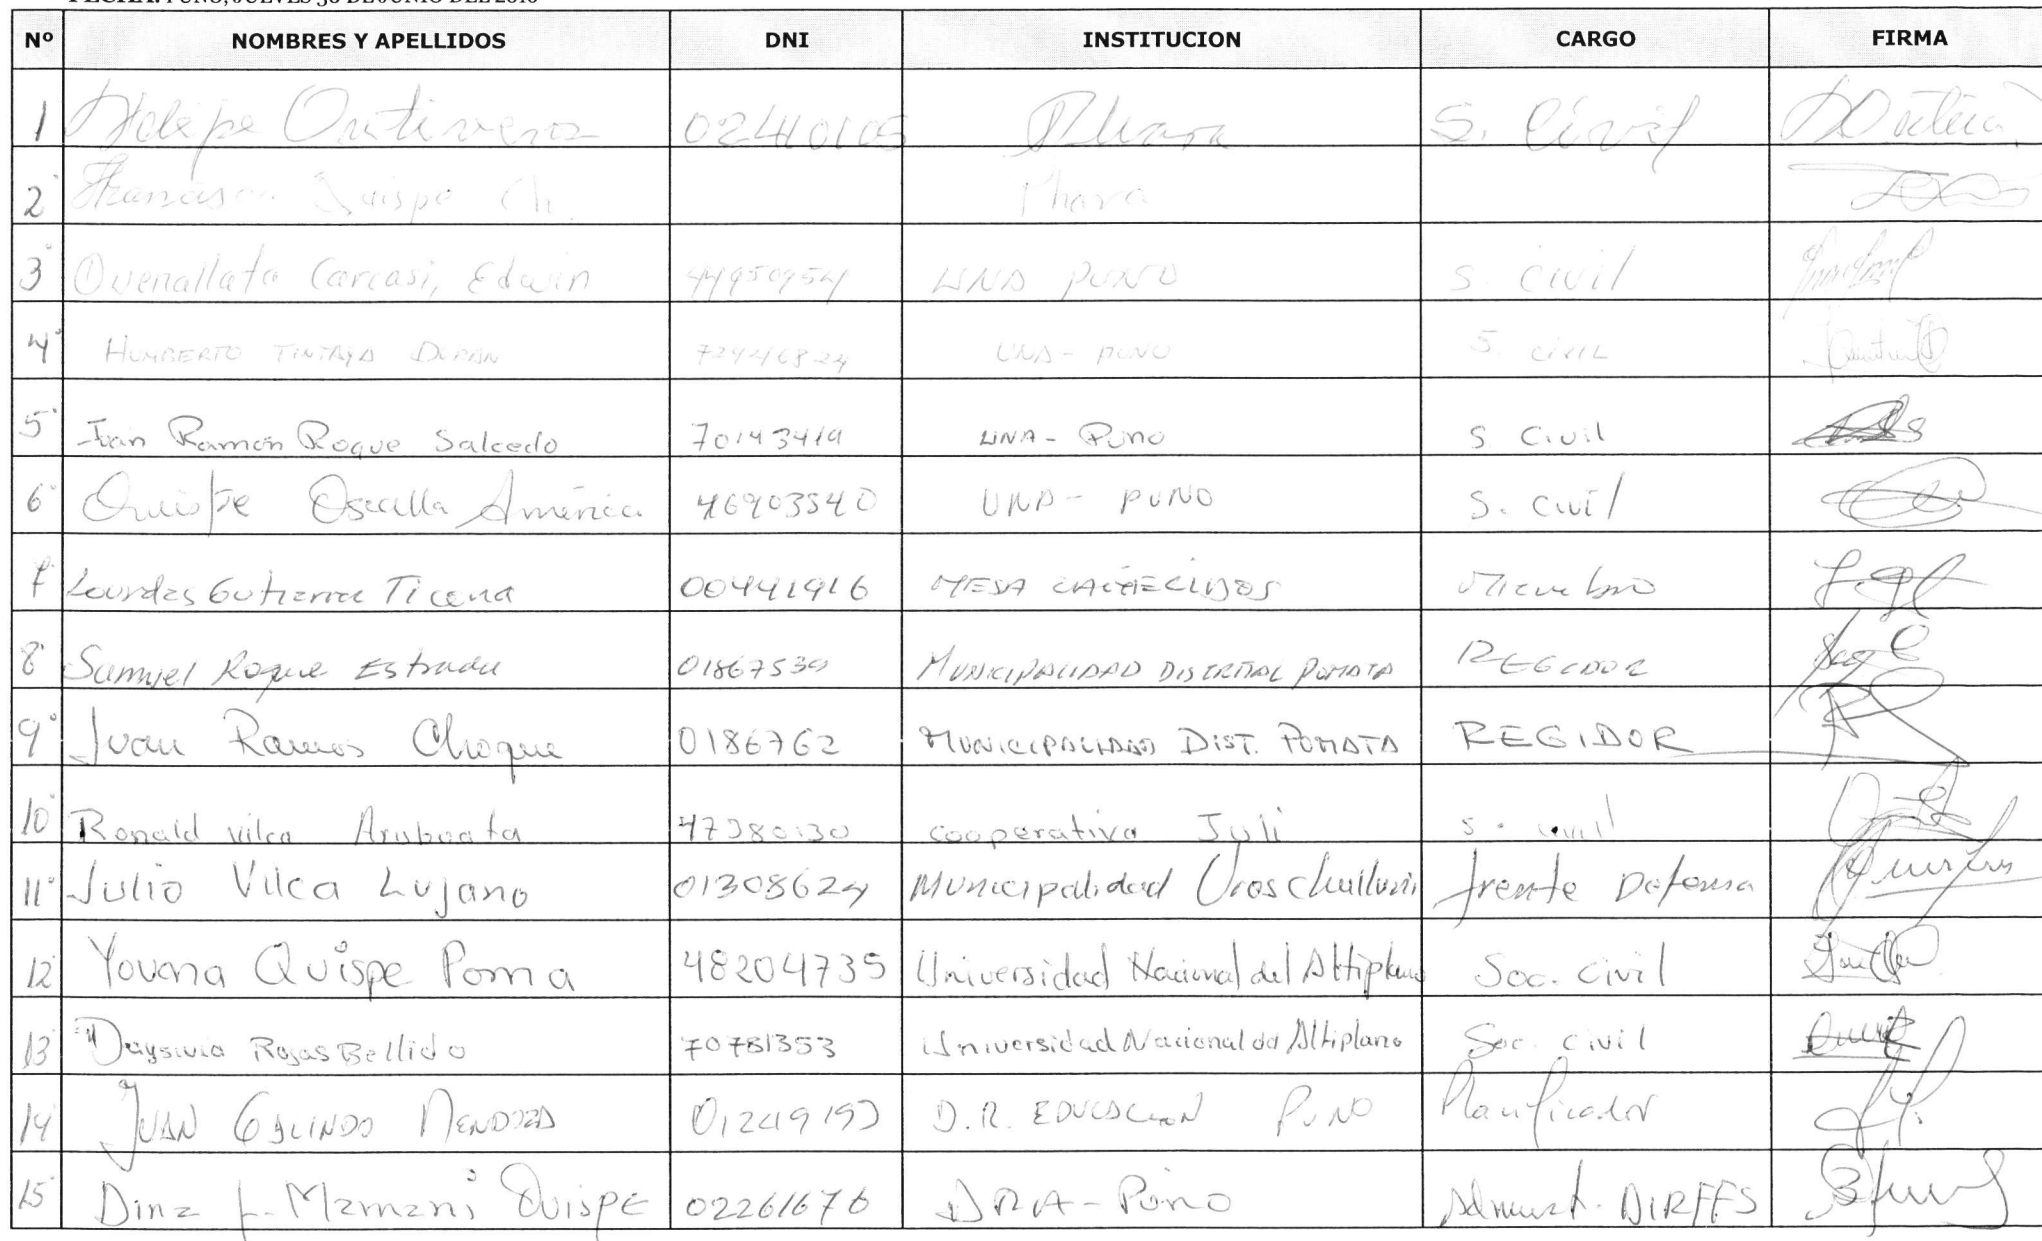 Nº NOMBRES Y APELLIDOS DNI INSTITUCION CARGO FIRMA
1 Felipe Ontiveros 02410105 Phara S. Civil
2° Francisco Quispe Ch. Phara
3° Quenallata Carcasi, Edwin 44950954 UNA PUNO S. Civil
4° HUMBERTO TINTAYA DURAN 72446824 UNA - PUNO S. CIVIL
5° Iván Ramón Roque Salcedo 70143419 UNA - Puno S. Civil
6° Quispe Oscalla América 46903540 UNA - PUNO S. civil
7 Lourdes Gutierrez Ticona 00441916 MESA Miembro
8° Samuel Roque Estrada 01867539 MUNICIPALIDAD DISTRITAL POMATA REGIDOR
9° Juan Ramos Choque 0186762 MUNICIPALIDAD DIST. POMATA REGIDOR
10° Ronald Vilca 47380130 cooperativa Juli S. civil
11° Julio Vilca Lujano 01308624 Municipalidad Uros Chulluni frente Defensa
12° Yovana Quispe Poma 48204735 Universidad Nacional del Altiplano Soc. Civil
13° Rojas Bellido 70781353 Universidad Nacional del Altiplano Soc. civil
14° JUAN GALINDO MENDOZA 01249193 D.R. EDUCACION PUNO Planificador
15° Dina L. Mamani Quispe 02261676 DRA - Puno Administ. DIRFFS